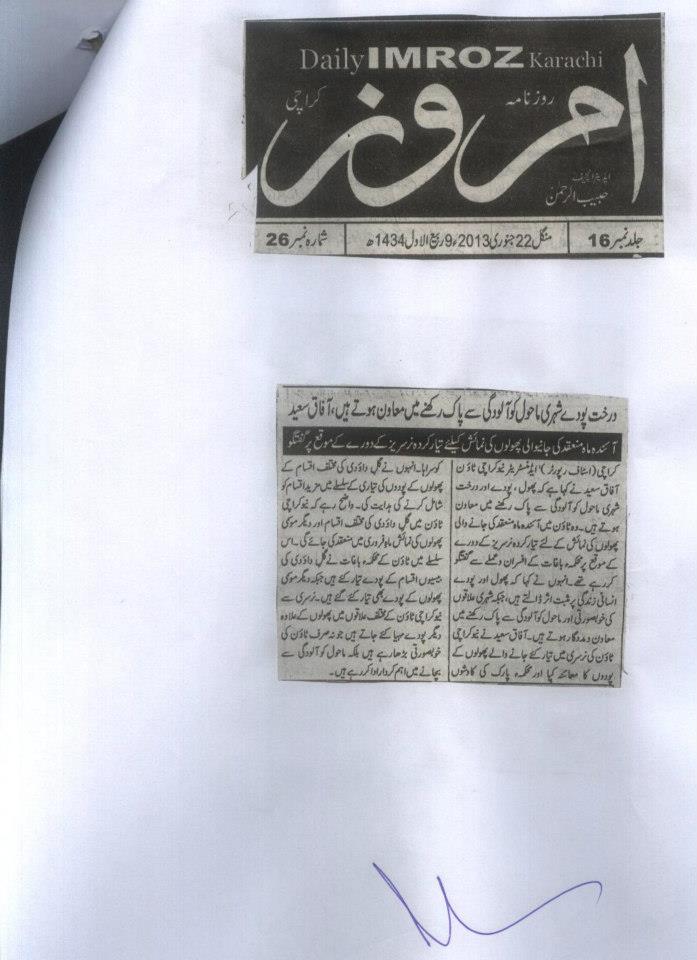 Daily IMROZ Karachi
روزنامہ
کراچی
امروز
ایڈیٹر انچیف
حبیب الرحمن
جلد نمبر 16
منگل 22 جنوری 2013ء 9 ربیع الاول 1434ھ
شمارہ نمبر 26
درخت پودے شہری ماحول کو آلودگی سے پاک رکھنے میں معاون ہوتے ہیں، آفاق سعید
آئندہ ماہ منعقد کی جانیوالی پھولوں کی نمائش کیلئے تیار کردہ نرسریز کے دورے کے موقع پر گفتگو
کراچی (اسٹاف رپورٹر) ایڈمنسٹریٹر نیو کراچی ٹاؤن
آفاق سعید نے کہا ہے کہ پھول، پودے اور درخت
شہری ماحول کو آلودگی سے پاک رکھنے میں معاون
ہوتے ہیں۔ وہ ٹاؤن میں آئندہ ماہ منعقد کی جانے والی
پھولوں کی نمائش کے لئے تیار کردہ نرسریز کے دورے
کے موقع پر محکمہ باغات کے افسران و عملے سے گفتگو
کر رہے تھے۔ انہوں نے کہا کہ پھول اور پودے
انسانی زندگی پر مثبت اثر ڈالتے ہیں، جبکہ شہری علاقوں
کی خوبصورتی اور ماحول کو آلودگی سے پاک رکھنے میں
معاون و مددگار ہوتے ہیں۔ آفاق سعید نے نیو کراچی
ٹاؤن کی نرسری میں تیار کئے جانے والے پھولوں کے
پودوں کا معائنہ کیا اور محکمہ پارک کی کاوشوں
کو سراہا۔ انہوں نے گل داؤدی کی مختلف اقسام کے
پھولوں کے پودوں کی تیاری کے سلسلے میں مزید اقسام کو
شامل کرنے کی ہدایت کی۔ واضح رہے کہ نیو کراچی
ٹاؤن میں گل داؤدی کی مختلف اقسام اور دیگر موسمی
پھولوں کی نمائش ماہ فروری میں منعقد کی جائے گی۔ اس
سلسلے میں ٹاؤن کے محکمہ باغات نے گل داؤدی کی
بیسیوں اقسام کے پودے تیار کئے ہیں جبکہ دیگر موسمی
پھولوں کے پودے بھی تیار کئے گئے ہیں۔ نرسری سے
نیو کراچی ٹاؤن کے مختلف علاقوں میں پھولوں کے علاوہ
دیگر پودے مہیا کئے جاتے ہیں جو نہ صرف ٹاؤن کی
خوبصورتی بڑھا رہے ہیں بلکہ ماحول کو آلودگی سے
بچانے میں اہم کردار ادا کر رہے ہیں۔